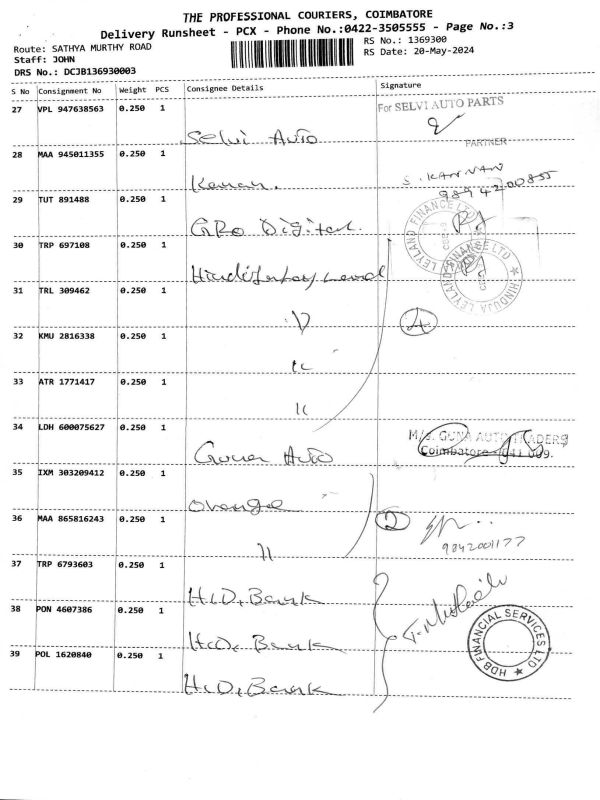 THE PROFESSIONAL COURIERS, COIMBATORE
Delivery Runsheet - PCX - Phone No.:0422-3505555 - Page No.:3
Route: SATHYA MURTHY ROAD
RS No.: 1369300
Staff: JOHN
RS Date: 20-May-2024
DRS No.: DCJB136930003
S No Consignment No Weight PCS Consignee Details Signature
27 VPL 947638563 0.250 1
For SELVI AUTO PARTS
Selvi Auto
PARTNER
28 MAA 945011355 0.250 1
S. KANNAN
Kanan.
9894200855
29 TUT 891488 0.250 1
GRo Digital.
HINDUJA LEYLAND FINANCE LTD
30 TRP 697108 0.250 1
HINDUJA LEYLAND FINANCE LTD
31 TRL 309462 0.250 1
4
32 KMU 2816338 0.250 1
11
33 ATR 1771417 0.250 1
11
34 LDH 600075627 0.250 1
M/s. GUNA AUTO TRADERS
Guna Auto
Coimbatore - 641 009.
35 IXM 303209412 0.250 1
Orange
36 MAA 865816243 0.250 1
2
11
9842001177
37 TRP 6793603 0.250 1
H.D. Bank
38 PON 4607386 0.250 1
H.D. Bank
HDB FINANCIAL SERVICES LTD
39 POL 1620840 0.250 1
H.D. Bank